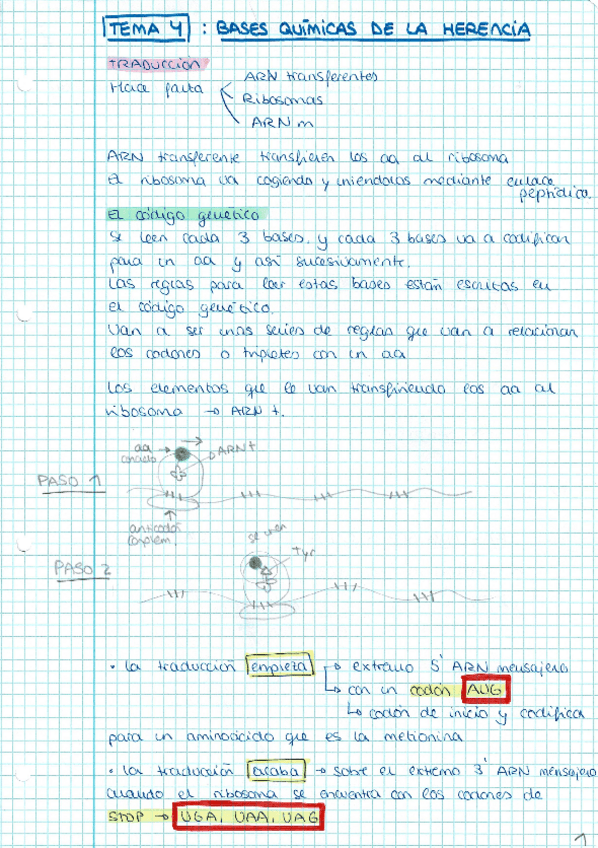 TEMA 4 : BASES QUÍMICAS DE LA HERENCIA
TRADUCCIÓN
Hace falta
ARN transferentes
Ribosomas
ARN m
ARN transferente transfieren los aa al ribosoma
El ribosoma va cogiendo y uniendolos mediante enlace
peptídico.
El código genético
Se leen cada 3 bases, y cada 3 bases va a codificar
para un aa y así sucesivamente.
Las reglas para leer estas bases están escritas en
el código genético.
Van a ser unas series de reglas que van a relacionar
los codones o tripletes con un aa
Los elementos que le van transfiriendo los aa al
ribosoma → ARN t.
PASO 1
aa
ARN t
anticodón
complem.
PASO 2
se unen
Tyr
• La traducción empieza → extremo 5' ARN mensajero
→ con un codón AUG
→ codón de inicio y codifica
para un aminoácido que es la metionina
• La traducción acaba → sobre el extremo 3' ARN mensajero
cuando el ribosoma se encuentra con los codones de
STOP → UGA, UAA, UAG
1